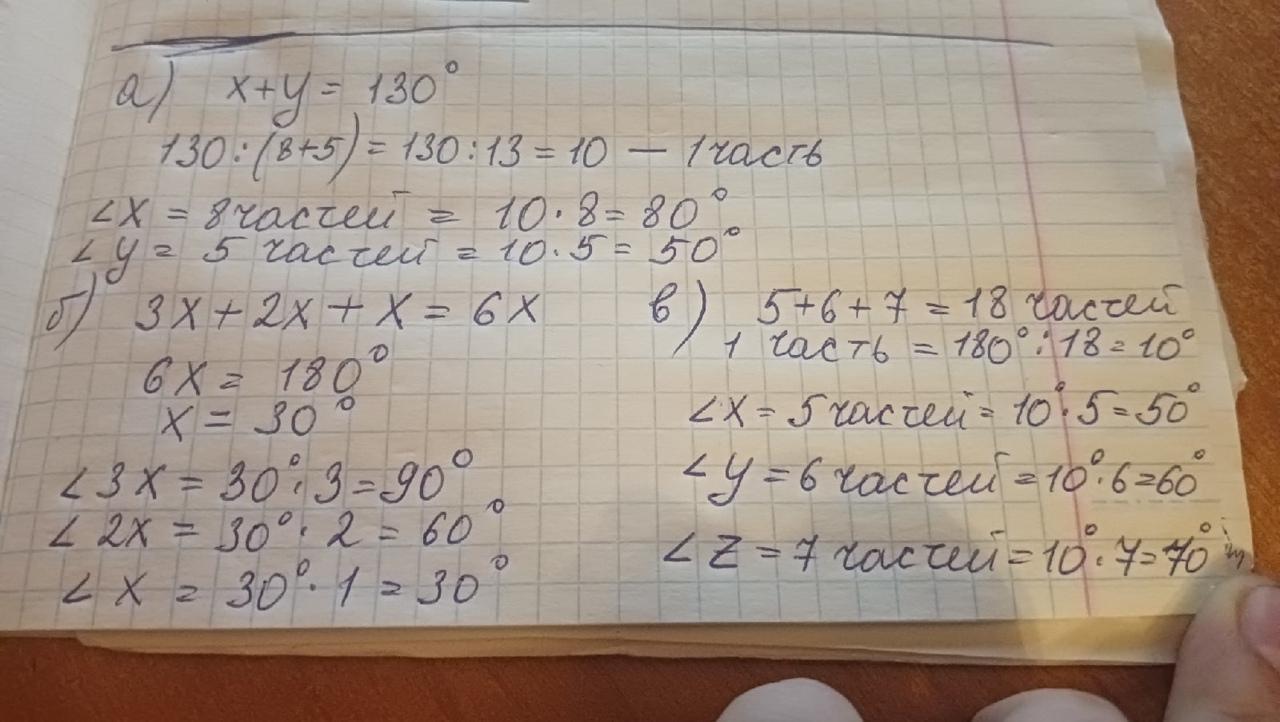 а) x+y = 130°
130:(8+5)=130:13=10 — 1 часть
∠X = 8 частей = 10·8=80°
∠y = 5 частей = 10·5= 50°
б) 3x+2x+x=6x
6x= 180°
x= 30°
∠3x=30°·3=90°
∠2x=30°·2=60°
∠x = 30°·1=30°
в) 5+6+7=18 частей
1 часть = 180°:18=10°
∠X=5 частей=10°·5=50°
∠y=6 частей=10°·6=60°
∠Z=7 частей=10°·7=70°